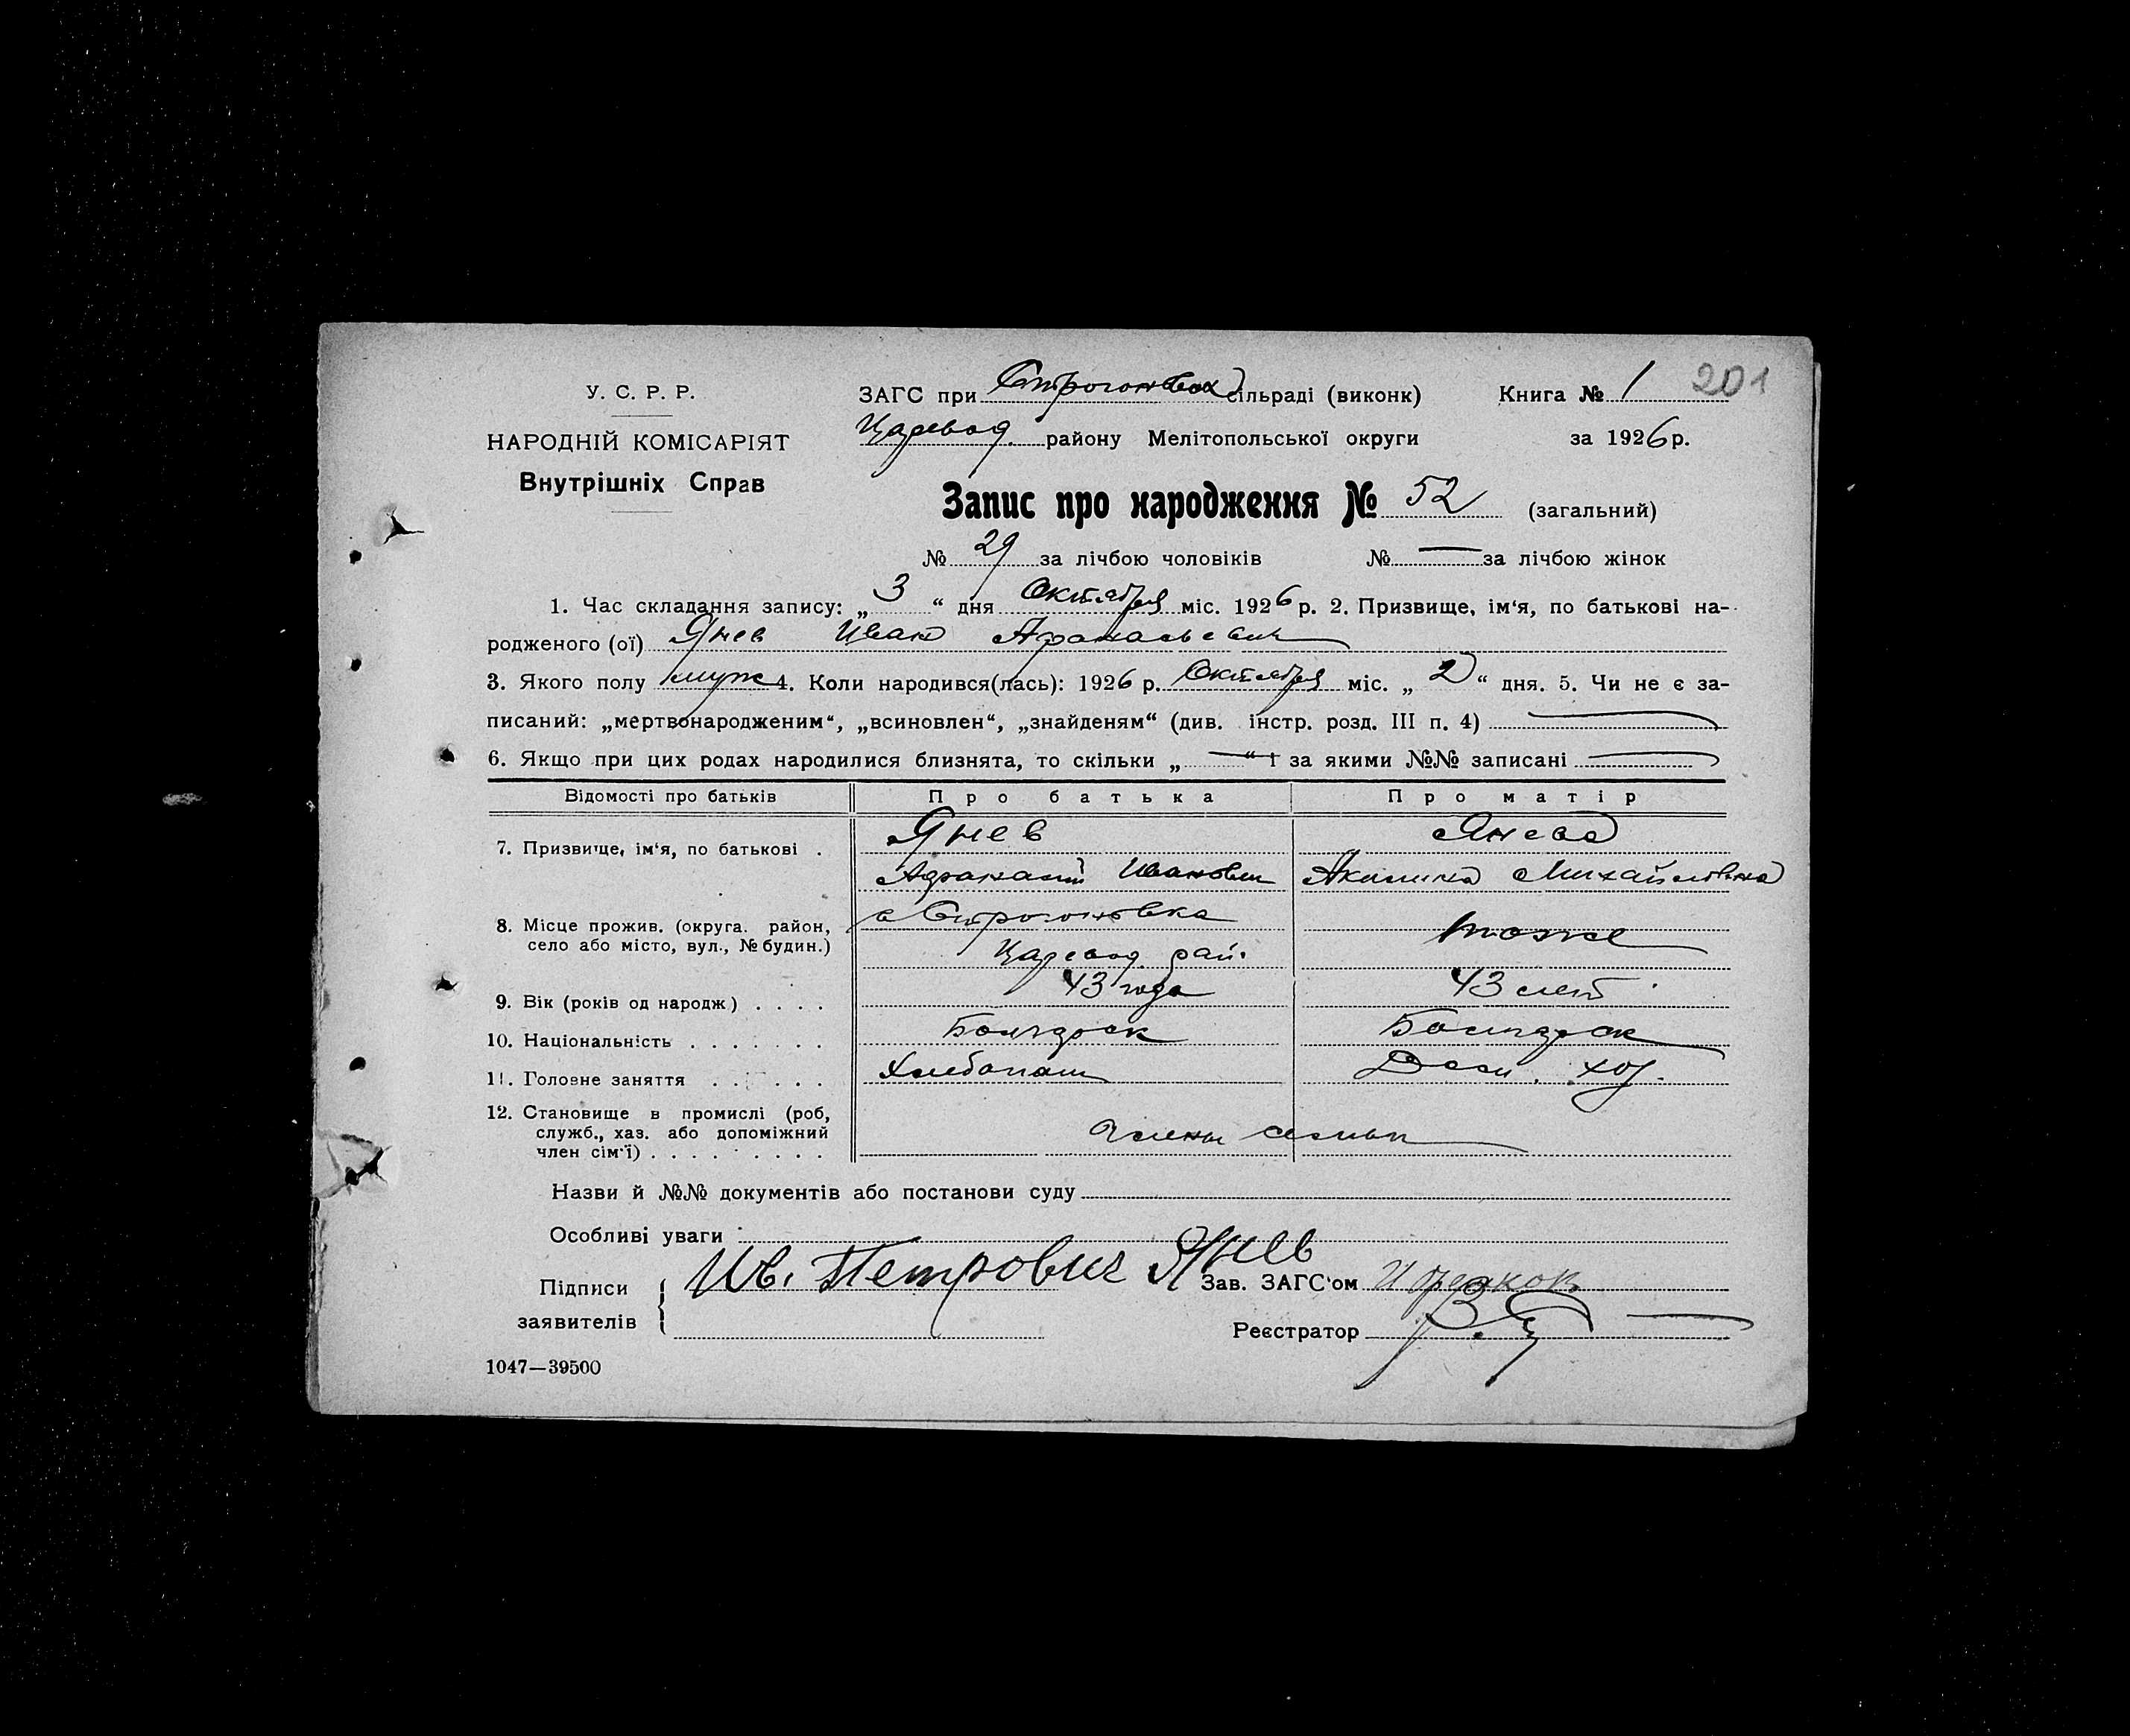 201
У. С. Р. Р.
НАРОДНІЙ КОМІСАРІЯТ
Внутрішніх Справ
ЗАГС при Строгоновск сільраді (виконк) Книга № 1
Царевод. району Мелітопольської округи за 1926 р.
Запис про народження № 52 (загальний)
№ 29 за лічбою чоловіків № — за лічбою жінок
1. Час складання запису: „3“ дня Октября міс. 1926 р. 2. Призвище, ім‘я, по батькові на-
родженого (ої) Янев Иван Афанасьевич
3. Якого полу муж 4. Коли народився(лась): 1926 р. Октября міс. „2“ дня. 5. Чи не є за-
писаний: „мертвонародженим“, „всиновлен“, „знайденям“ (див. інстр. розд. III п. 4) —
6. Якщо при цих родах народилися близнята, то скільки „—“ і за якими №№ записані —
Відомості про батьків Про батька Про матір
7. Призвище, ім‘я, по батькові . Янев Янева
Афанасий Иванович Акилина Михайловна
8. Місце прожив. (округа. район, село або місто, вул., № будин.) с Строгоновка тоже
Царевод. рай.
9. Вік (років од народж) . . . . 43 года 43 лет
10. Національність . . . . . . . Болгарск Болгарск
11. Головне заняття . . . . . . Хлебопаш Дом. хоз.
12. Становище в промислі (роб, служб., хаз. або допоміжний член сім‘ї) . . . . . . . . . члены семьи
Назви й №№ документів або постанови суду
Особливі уваги
Підписи заявителів Ив. Петрович Янев
Зав. ЗАГС‘ом
Реєстратор
1047—39500